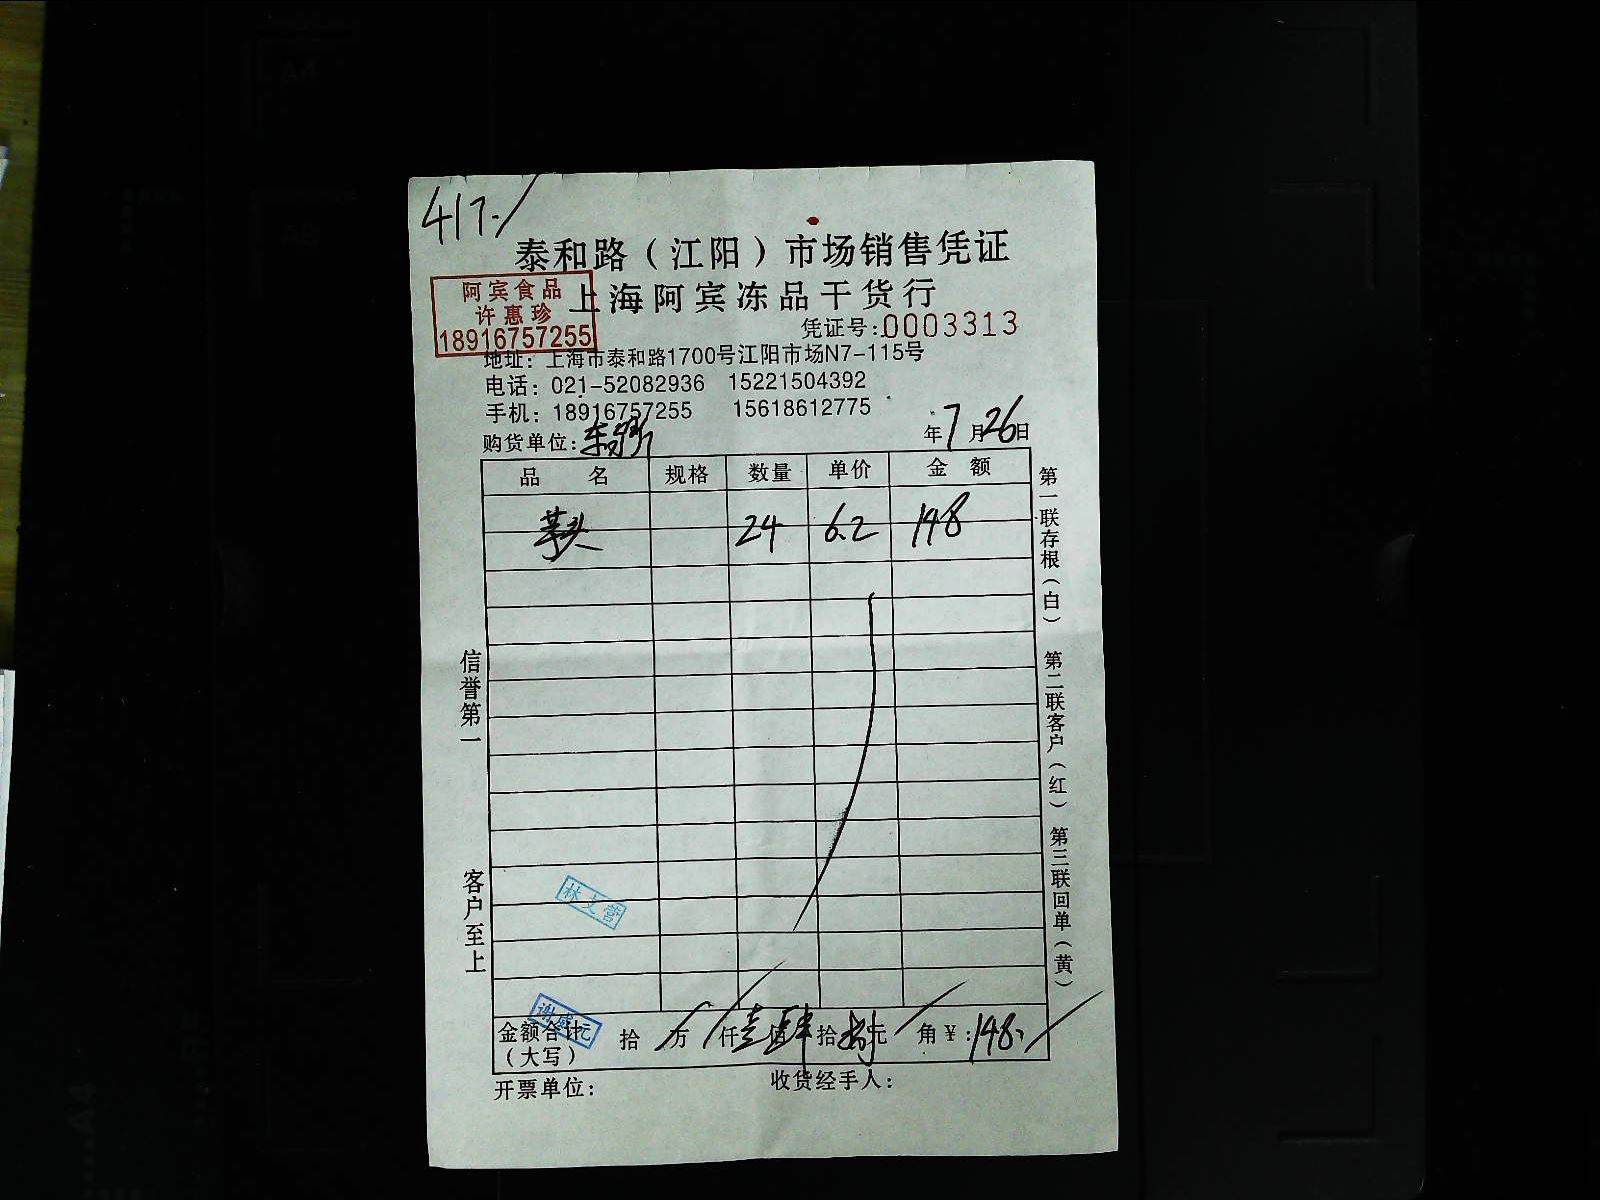 417.
泰和路（江阳）市场销售凭证
上海阿宾冻品干货行
阿宾食品
许惠珍
18916757255
凭证号:0003313
地址：上海市泰和路1700号江阳市场N7-115号
电话：021-52082936 15221504392
手机：18916757255 15618612775
年7月26日
购货单位:
品名 规格 数量 单价 金额
芋头 24 6.2 148
信誉第一
客户至上
第一联存根（白）
第二联客户（红）
第三联回单（黄）
林文营
金额合计
（大写）
拾 万 仟壹佰肆拾捌元 角￥:148.
开票单位：
收货经手人：